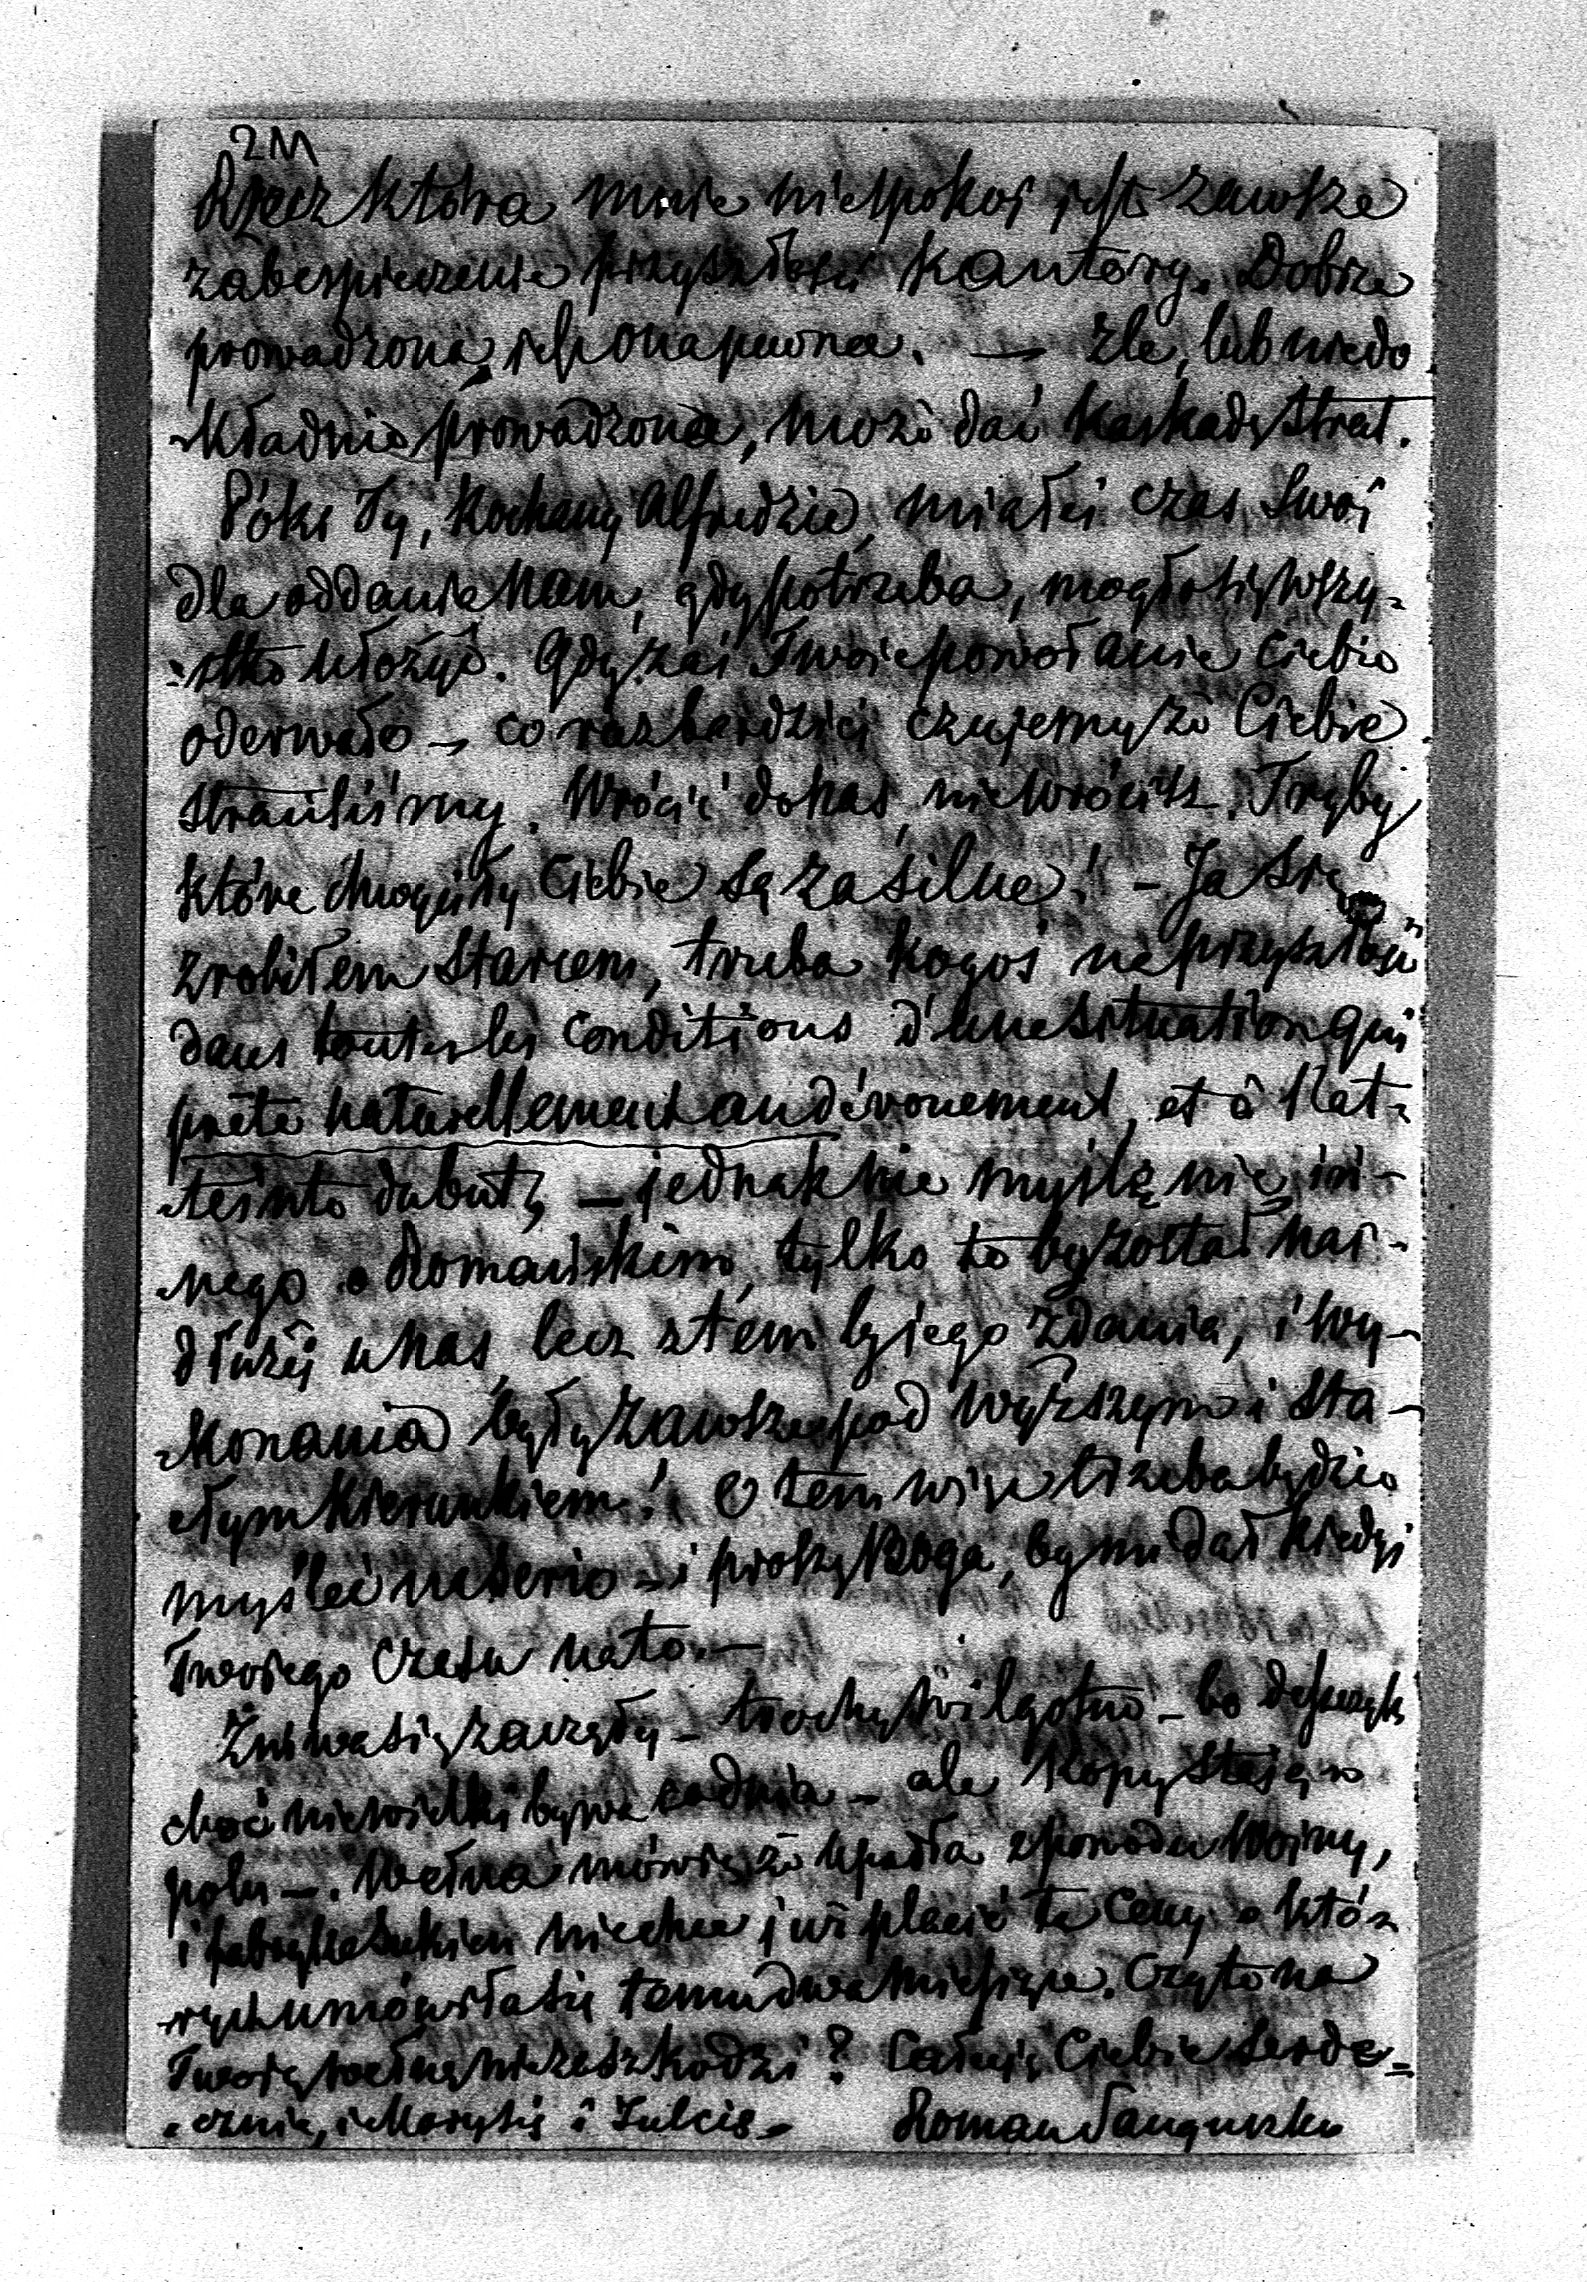 2M
Rzecz która mnie niespokoi jest zawsze
zabespieczenie przyszłości Kantory. Dobrze
prowadzona, jest ona pewna. — Źle, lub niedo
kładnie prowadzona, może dać kaskadę strat.
Póki Ty, Kochany Alfredzie, miałeś czas swój
dla oddania nam, gdy potrzeba, mogło się wszy-
stko ułożyć. Gdy zaś Twoje powołanie Ciebie
oderwało — co raz bardziej czujemy że Ciebie
straciliśmy. Wrócić do nas, nie wrócisz. Tryby
które Ciebie są za silne! — Ja się
zrobiłem starcem, trzeba kogoś na przyszłość
dans toutes les conditions d'une situation qui
prête naturellement au dévouement, et à l'at-
teinte du but, — jednak nie myślę nic in-
nego o Romańskim, tylko to by został naj-
dłużej u nas, lecz z tem by jego zdania, i wy-
konania były zawsze pod wyższym i sta-
łym kierunkiem! O tem więc trzeba będzie
myśleć na serio — i proszę Boga, by mi dał kiedyś
Twojego czasu na to. —
Żniwa się zaczęły — trochę wilgotno — bo deszczyk
choć niewielki bywa co dnia — ale kopy stoją w
polu —. Wełna mówią że upadła z powodu wojny,
i fabryka sukien nie chce już płacić te ceny o któ-
rych umówiła się temu dwa miesiące. Czy to na
Twoją wełnę nie zeszkodzi? Całuję Ciebie serde-
cznie, i Marysię i Julcię — Roman Sanguszko